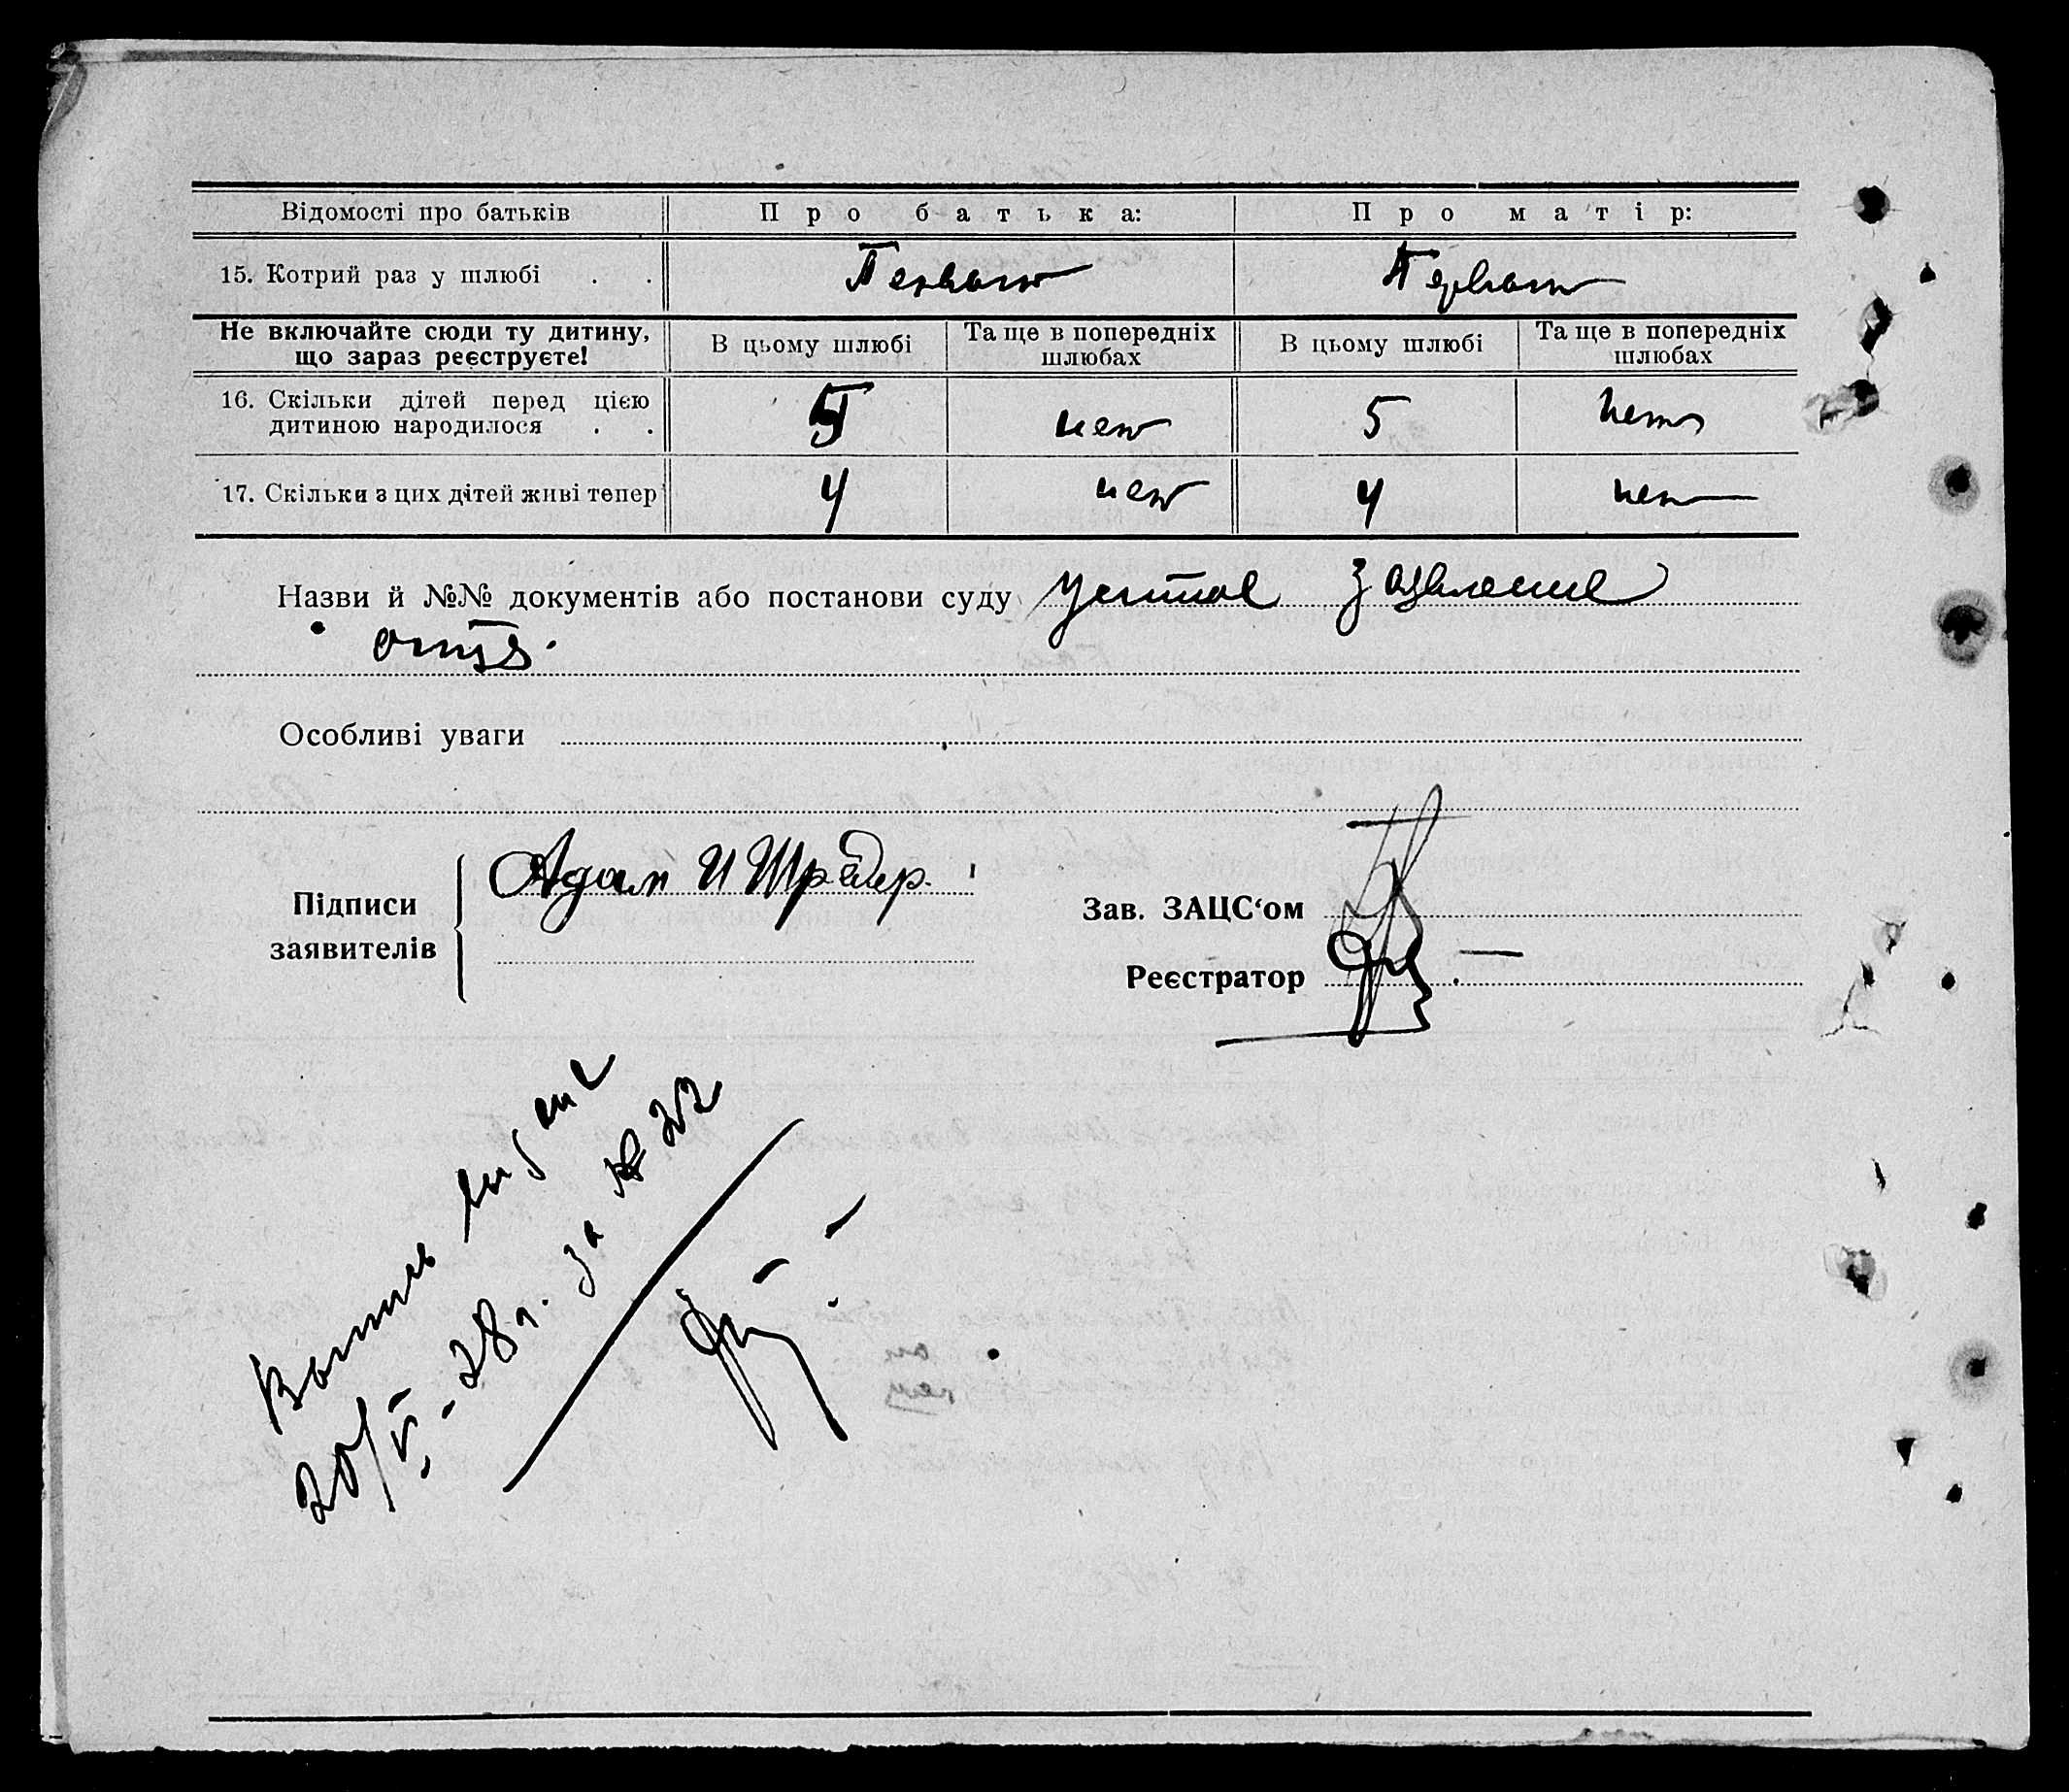 Відомості про батьків Про батька: Про матір:
15. Котрий раз у шлюбі . . Первом Первом
Не включайте сюди ту дитину, що зараз реєструєте! В цьому шлюбі Та ще в попередніх шлюбах В цьому шлюбі Та ще в попередніх шлюбах
16. Скільки дітей перед цією дитиною народилося . . 5 нет 5 нет
17. Скільки з цих дітей живі тепер 4 нет 4 нет
Назви й №№ документів або постанови суду устное заявление
отца.
Особливі уваги
Підписи заявителів Адам И Шрейдер.
Зав. ЗАЦС‘ом
Реєстратор
Выпись выдана
20/V-28г. за № 22